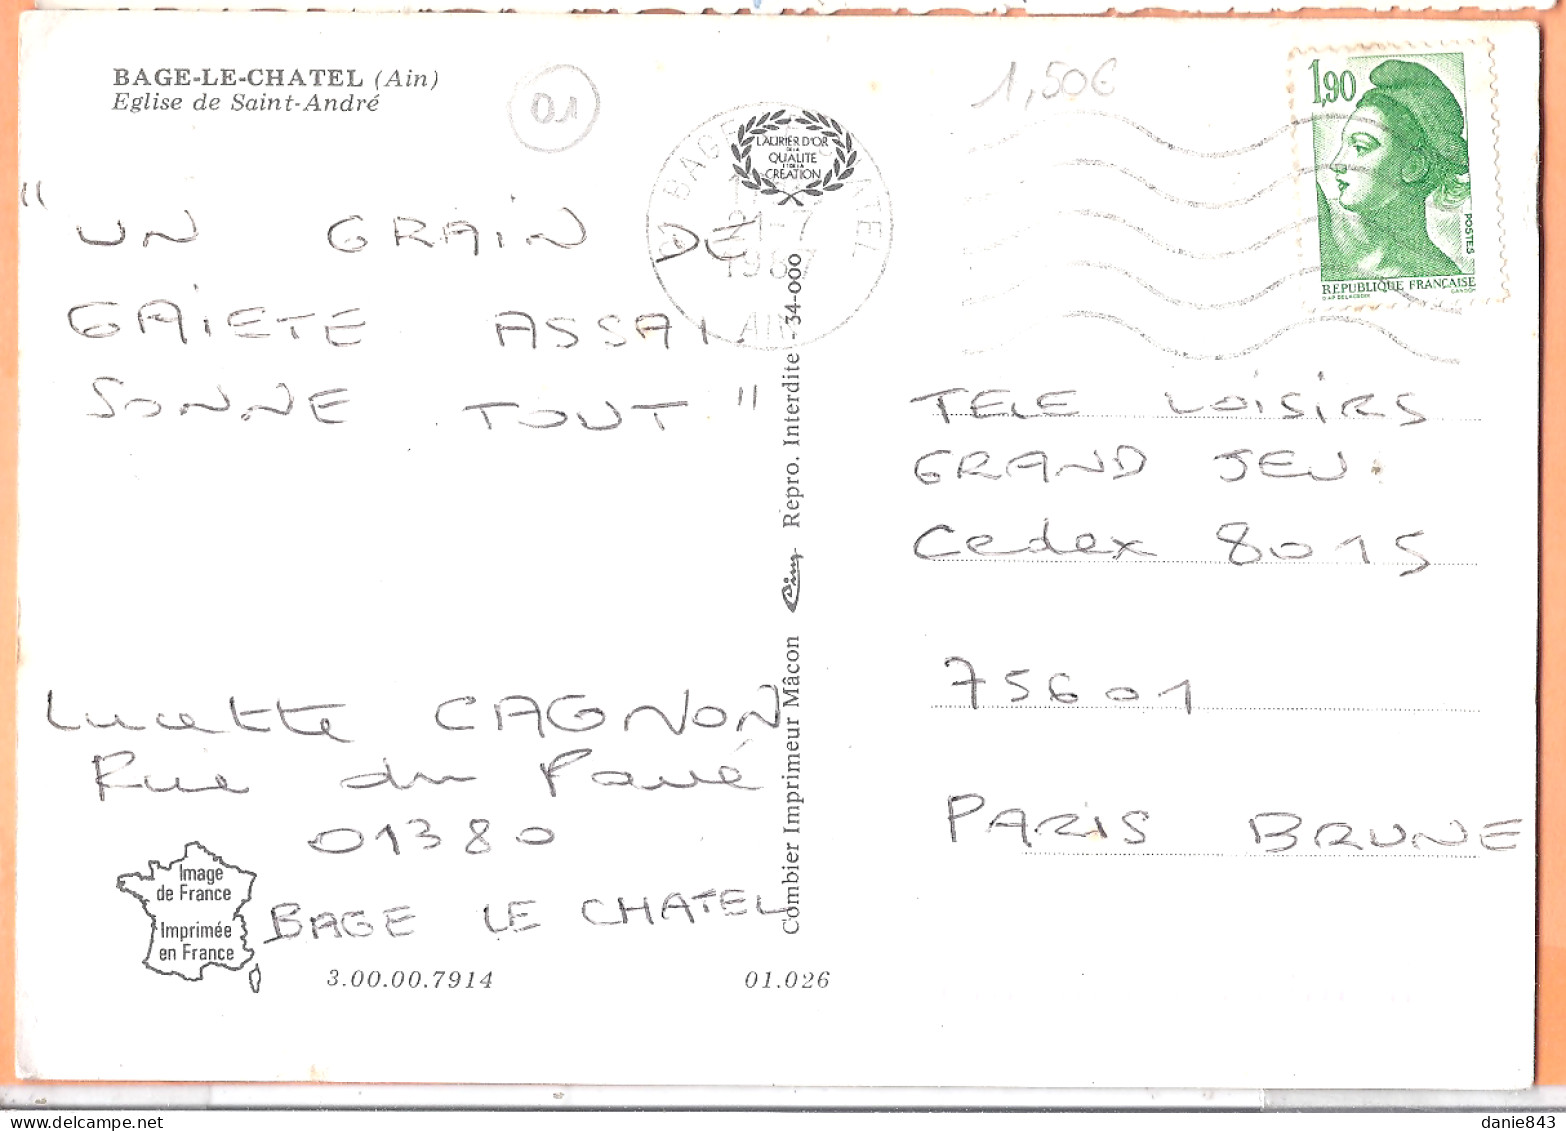 BAGE-LE-CHATEL (Ain)
Eglise de Saint-André
01
1,50€
LAURIER D'OR
DE LA
QUALITE
ET DE LA
CREATION
BAGE LE CHATEL
21-7
1987
AIN
1,90
POSTES
REPUBLIQUE FRANÇAISE
D'AP. DELACROIX GANDON
" UN GRAIN DE
GAIETE ASSAI
SONNE TOUT "
TELE LOISIRS
GRAND JEU.
Cedex 8015
75601
PARIS BRUNE
Lucette CAGNON
Rue du Pavé
01380
BAGE LE CHATEL
Image
de France
Imprimée
en France
3.00.00.7914
01.026
Combier Imprimeur Mâcon Cim Repro. Interdite - 34-000
danie843